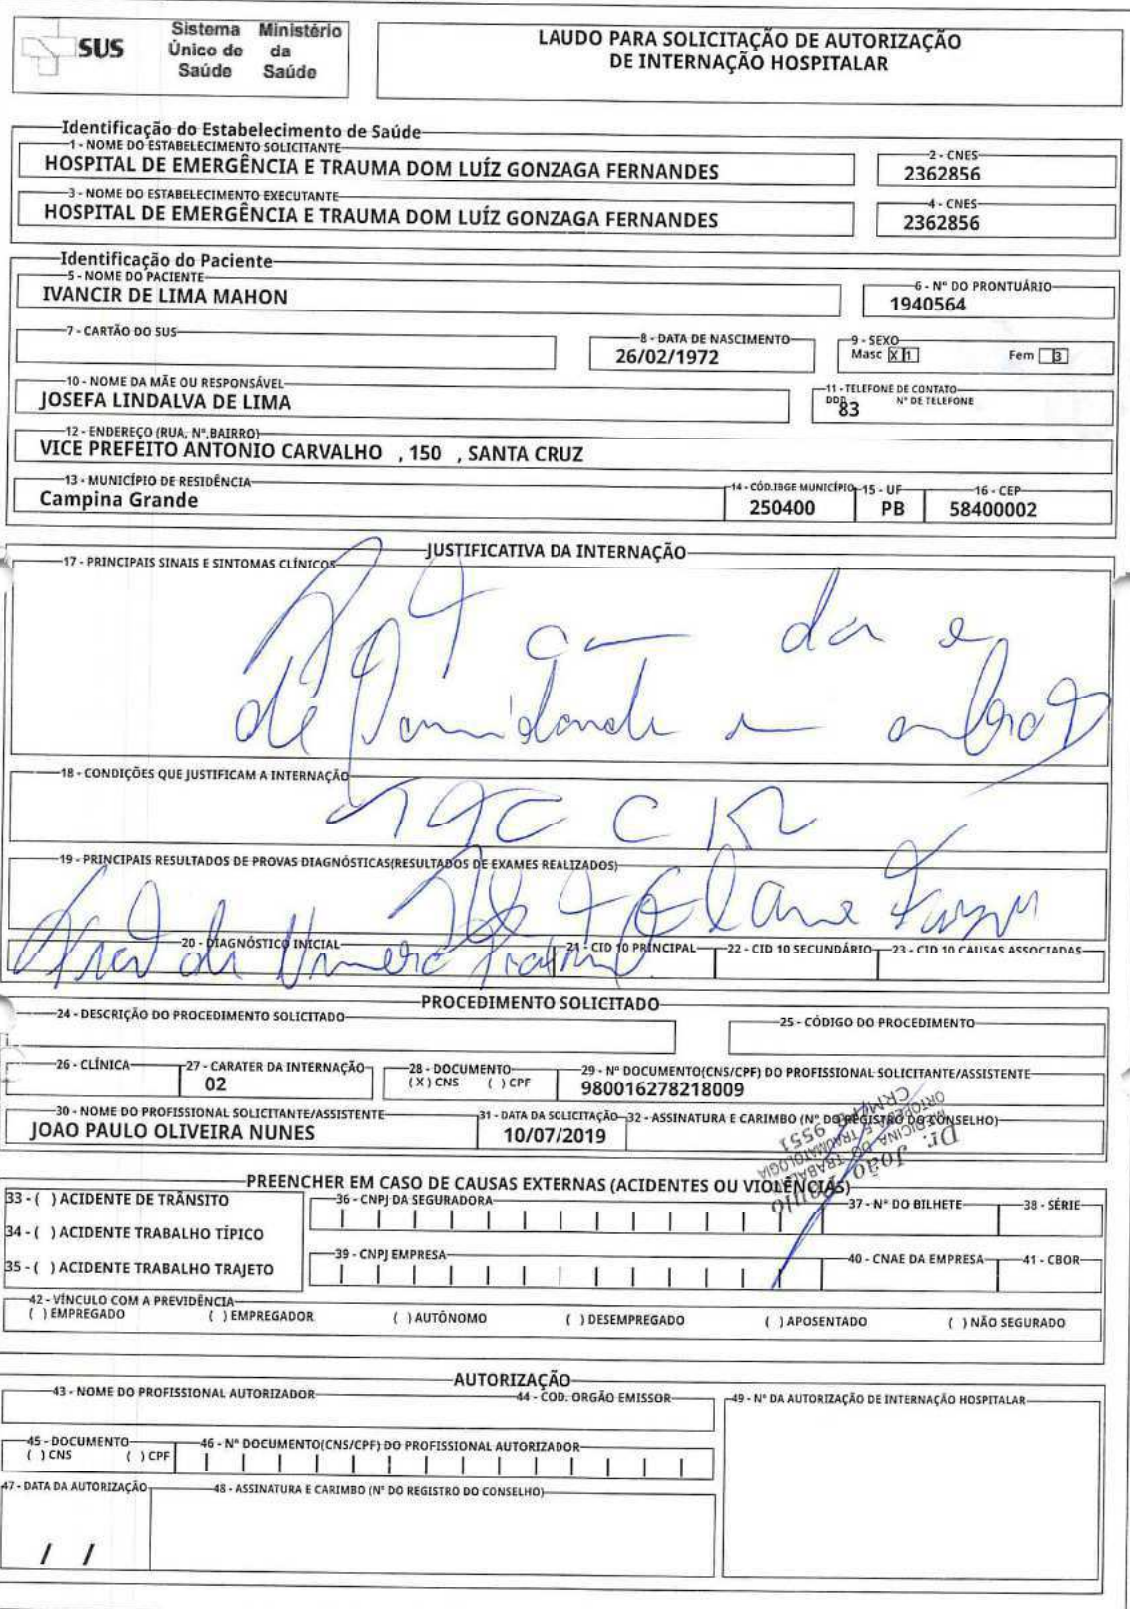 SUS
Sistema Ministério
Único de da
Saúde Saúde
LAUDO PARA SOLICITAÇÃO DE AUTORIZAÇÃO
DE INTERNAÇÃO HOSPITALAR
Identificação do Estabelecimento de Saúde
1 - NOME DO ESTABELECIMENTO SOLICITANTE
HOSPITAL DE EMERGÊNCIA E TRAUMA DOM LUÍZ GONZAGA FERNANDES
2 - CNES
2362856
3 - NOME DO ESTABELECIMENTO EXECUTANTE
HOSPITAL DE EMERGÊNCIA E TRAUMA DOM LUÍZ GONZAGA FERNANDES
4 - CNES
2362856
Identificação do Paciente
5 - NOME DO PACIENTE
IVANCIR DE LIMA MAHON
6 - Nº DO PRONTUÁRIO
1940564
7 - CARTÃO DO SUS
8 - DATA DE NASCIMENTO
26/02/1972
9 - SEXO
Masc X 1 Fem 3
10 - NOME DA MÃE OU RESPONSÁVEL
JOSEFA LINDALVA DE LIMA
11 - TELEFONE DE CONTATO
DDD Nº DE TELEFONE
83
12 - ENDEREÇO (RUA, Nº,BAIRRO)
VICE PREFEITO ANTONIO CARVALHO , 150 , SANTA CRUZ
13 - MUNICÍPIO DE RESIDÊNCIA
Campina Grande
14 - CÓD.IBGE MUNICÍPIO
250400
15 - UF
PB
16 - CEP
58400002
JUSTIFICATIVA DA INTERNAÇÃO
17 - PRINCIPAIS SINAIS E SINTOMAS CLÍNICOS
dor e
18 - CONDIÇÕES QUE JUSTIFICAM A INTERNAÇÃO
19 - PRINCIPAIS RESULTADOS DE PROVAS DIAGNÓSTICAS(RESULTADOS DE EXAMES REALIZADOS)
20 - DIAGNÓSTICO INICIAL
21 - CID 10 PRINCIPAL
22 - CID 10 SECUNDÁRIO
23 - CID 10 CAUSAS ASSOCIADAS
PROCEDIMENTO SOLICITADO
24 - DESCRIÇÃO DO PROCEDIMENTO SOLICITADO
25 - CÓDIGO DO PROCEDIMENTO
26 - CLÍNICA
27 - CARATER DA INTERNAÇÃO
02
28 - DOCUMENTO
( X ) CNS ( ) CPF
29 - Nº DOCUMENTO(CNS/CPF) DO PROFISSIONAL SOLICITANTE/ASSISTENTE
980016278218009
30 - NOME DO PROFISSIONAL SOLICITANTE/ASSISTENTE
JOAO PAULO OLIVEIRA NUNES
31 - DATA DA SOLICITAÇÃO
10/07/2019
32 - ASSINATURA E CARIMBO (Nº DO REGISTRO DO CONSELHO)
Dr. João Paulo
MEDICINA DO TRABALHO
ORTOPEDIA E TRAUMATOLOGIA
CRM/PB 9551
PREENCHER EM CASO DE CAUSAS EXTERNAS (ACIDENTES OU VIOLÊNCIAS)
33 - ( ) ACIDENTE DE TRÂNSITO
34 - ( ) ACIDENTE TRABALHO TÍPICO
35 - ( ) ACIDENTE TRABALHO TRAJETO
36 - CNPJ DA SEGURADORA
37 - Nº DO BILHETE
38 - SÉRIE
39 - CNPJ EMPRESA
40 - CNAE DA EMPRESA
41 - CBOR
42 - VÍNCULO COM A PREVIDÊNCIA
( ) EMPREGADO ( ) EMPREGADOR ( ) AUTÔNOMO ( ) DESEMPREGADO ( ) APOSENTADO ( ) NÃO SEGURADO
AUTORIZAÇÃO
43 - NOME DO PROFISSIONAL AUTORIZADOR
44 - COD. ORGÃO EMISSOR
49 - Nº DA AUTORIZAÇÃO DE INTERNAÇÃO HOSPITALAR
45 - DOCUMENTO
( ) CNS ( ) CPF
46 - Nº DOCUMENTO(CNS/CPF) DO PROFISSIONAL AUTORIZADOR
47 - DATA DA AUTORIZAÇÃO
/ /
48 - ASSINATURA E CARIMBO (Nº DO REGISTRO DO CONSELHO)